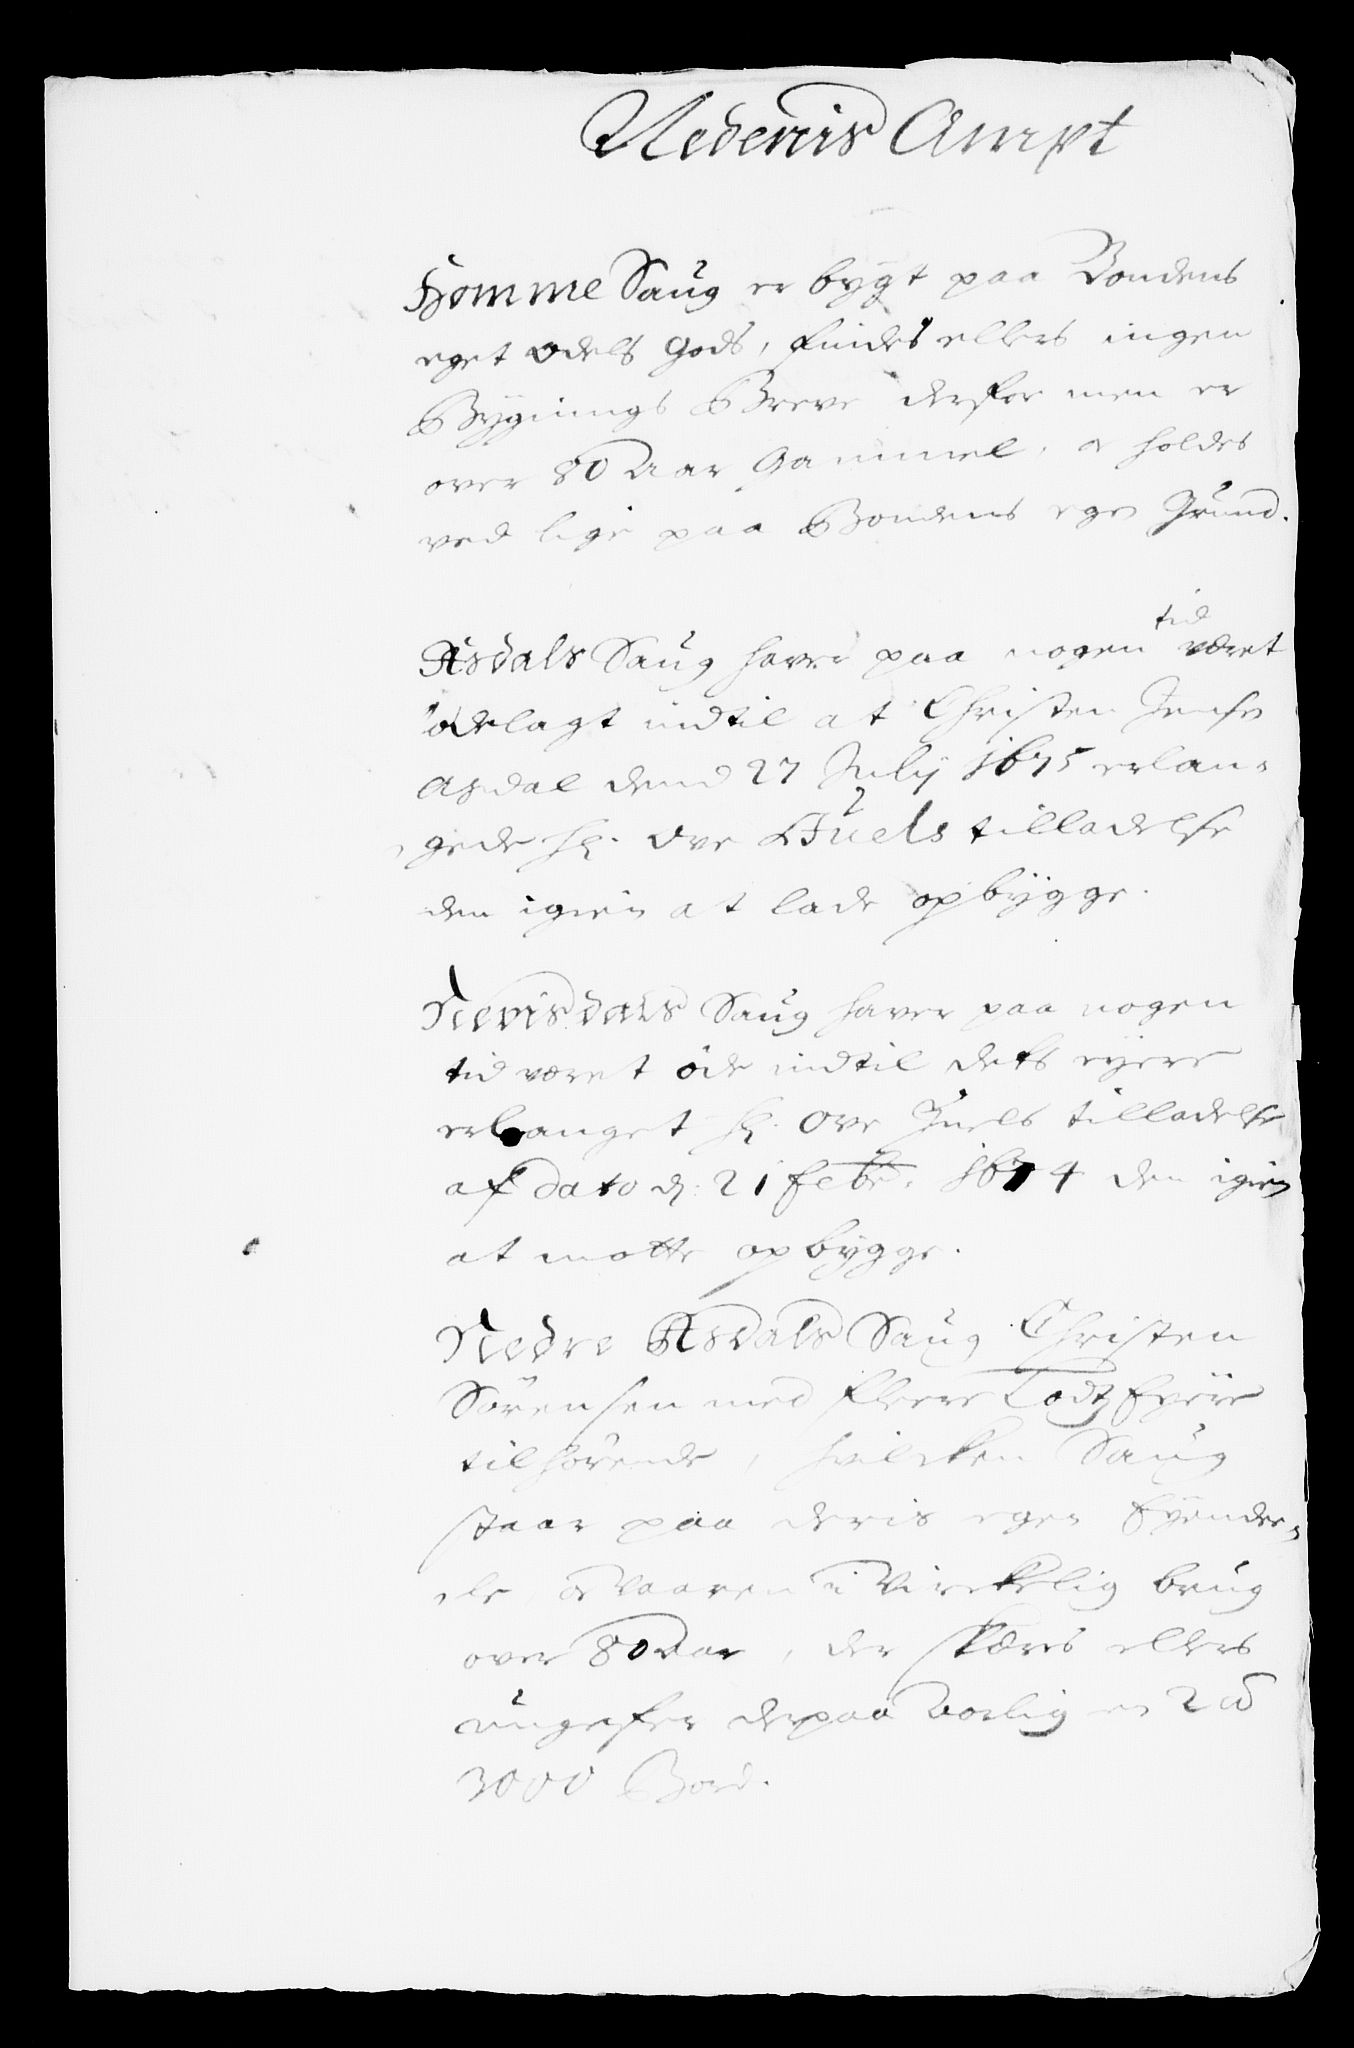 Nedenis Ampt
Homme Saug er bygt paa Bondens
eget odels Gods, findes ellers ingen
Bygnings Breve derfor men er
over 80 Aar Gammel, oc holdes
ved lige paa Bondens egen Grund.
Asdals Saug haver paa nogen tid været
ødelagt indtil at Christen Jensen
Asdal dend 27 July 1675 erlan-
gede Hr. Ove Juels tilladelse
den igien at lade opbygge.
Saug haver paa nogen
tid været øde indtil dets eyere
erlanget Hr. Ove Juels tilladelse
af Dato d: 21 febr. 1674 den igien
at motte opbygge.
Nedre Asdals Saug Christen
Sørensen med fleere Lodtz Eyere
tilhørende, hvilcken Saug
staar paa deris egen Eyende-
le, oc vaaren i Virckelig brug
over 80 Aar, der skæres ellers
ungefer derpaa Aarlig en 2 à
3000 Bord.